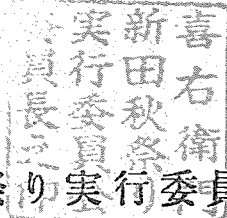 喜右衛門
新田秋祭
実行委員
員長之印
り実行委員